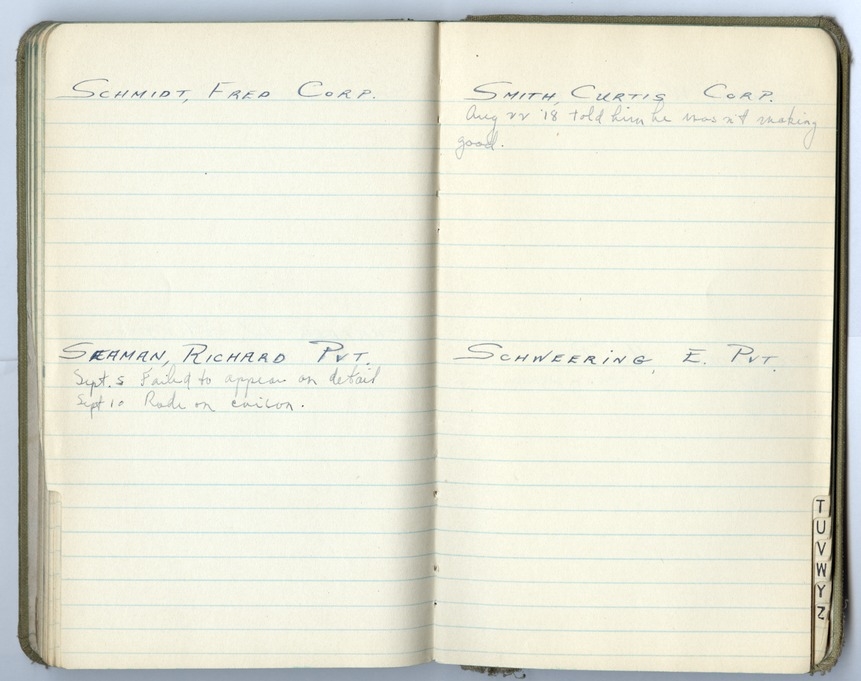 SCHMIDT, FRED CORP.
SEAMAN, RICHARD PVT.
Sept. 5 Failed to appear on detail
Sept 10 Rode on caison.
SMITH, CURTIS CORP.
Aug 22 '18 told him he wasn't making
good.
SCHWEERING, E. PVT.
T
U
V
W
Y
Z